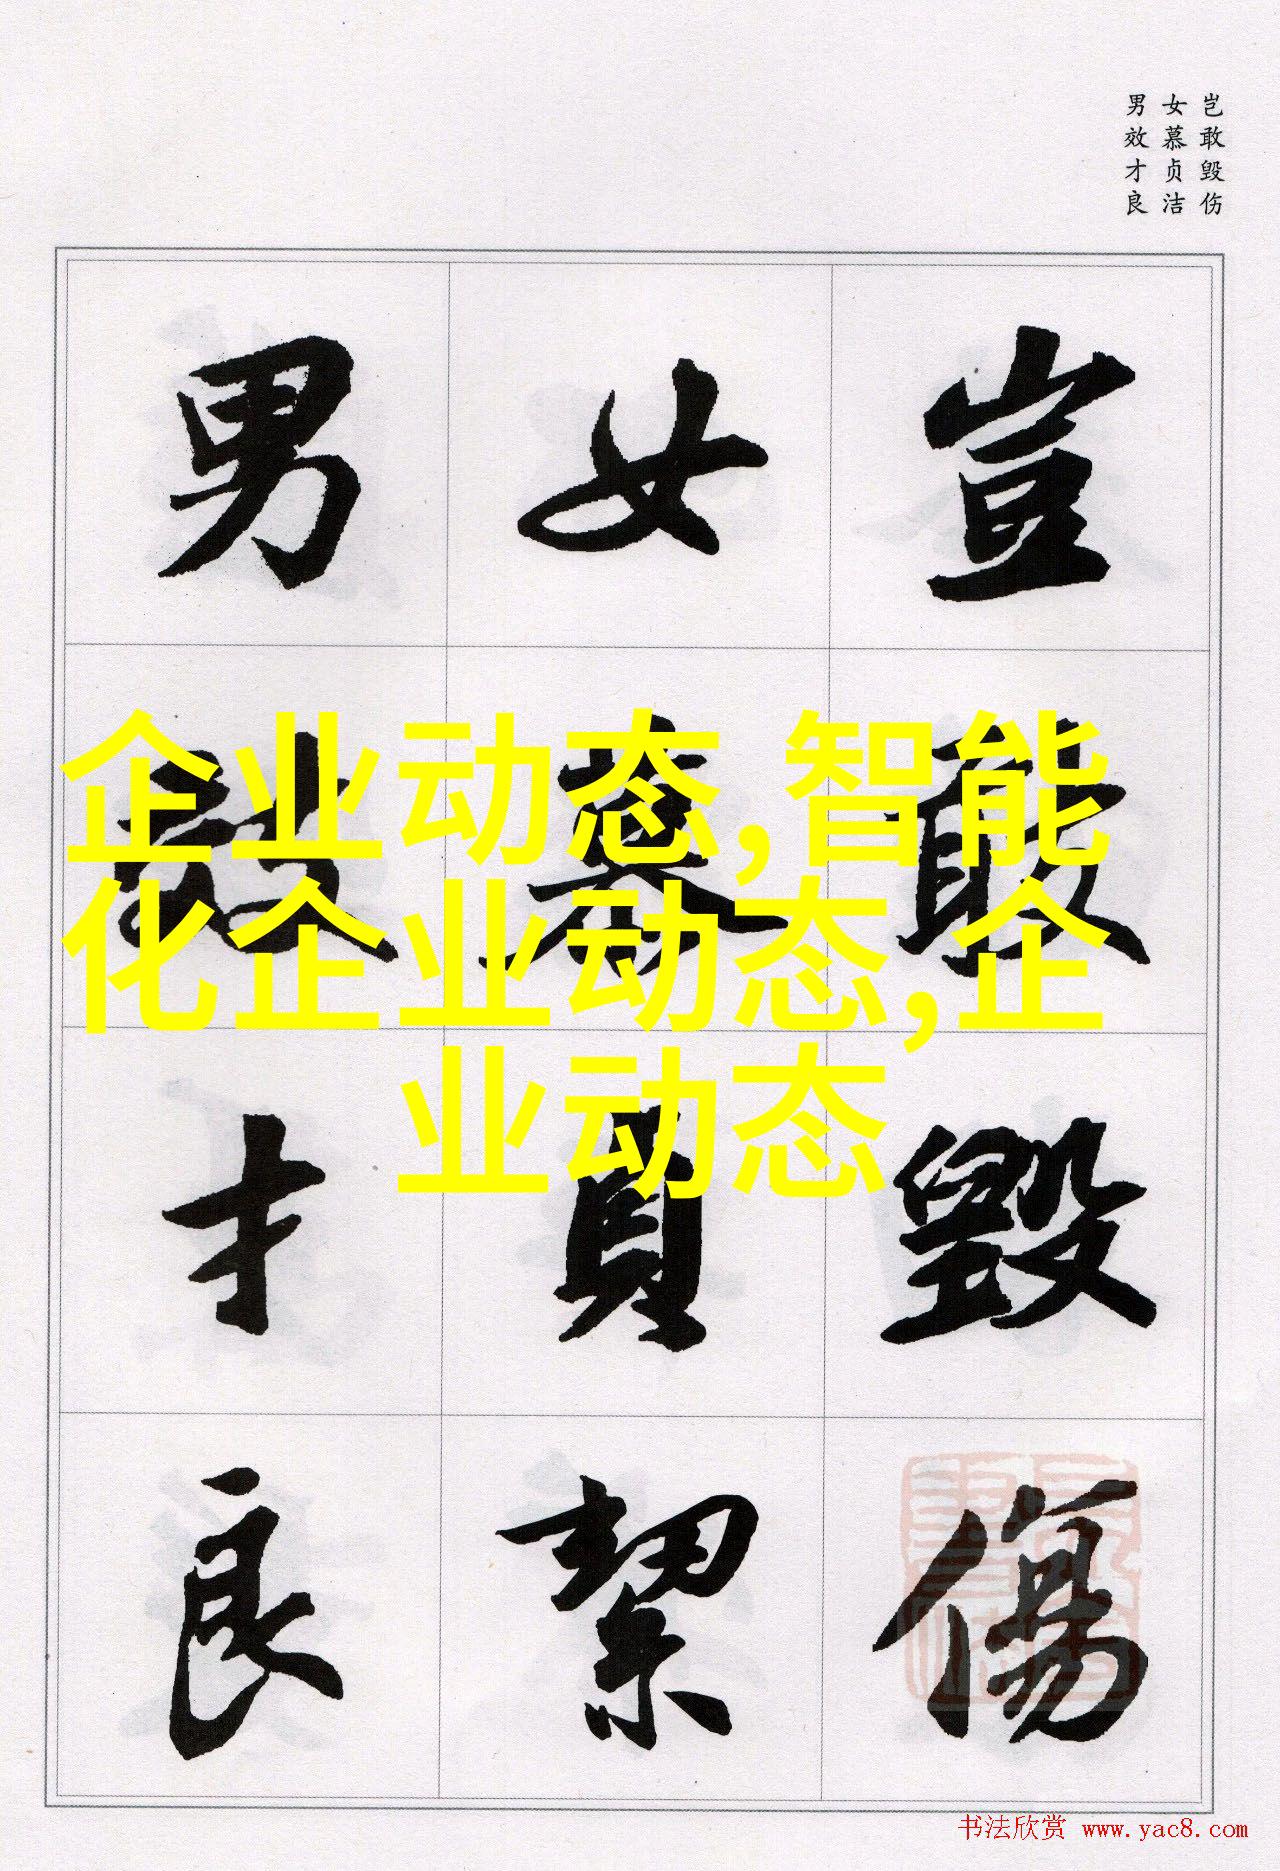 岂敢毁伤
女慕贞洁
男效才良
豈敢毀傷
女慕貞絜
男效才良
企业动态,智能
化企业动态,企
业动态
书法欣赏 www.yac8.com